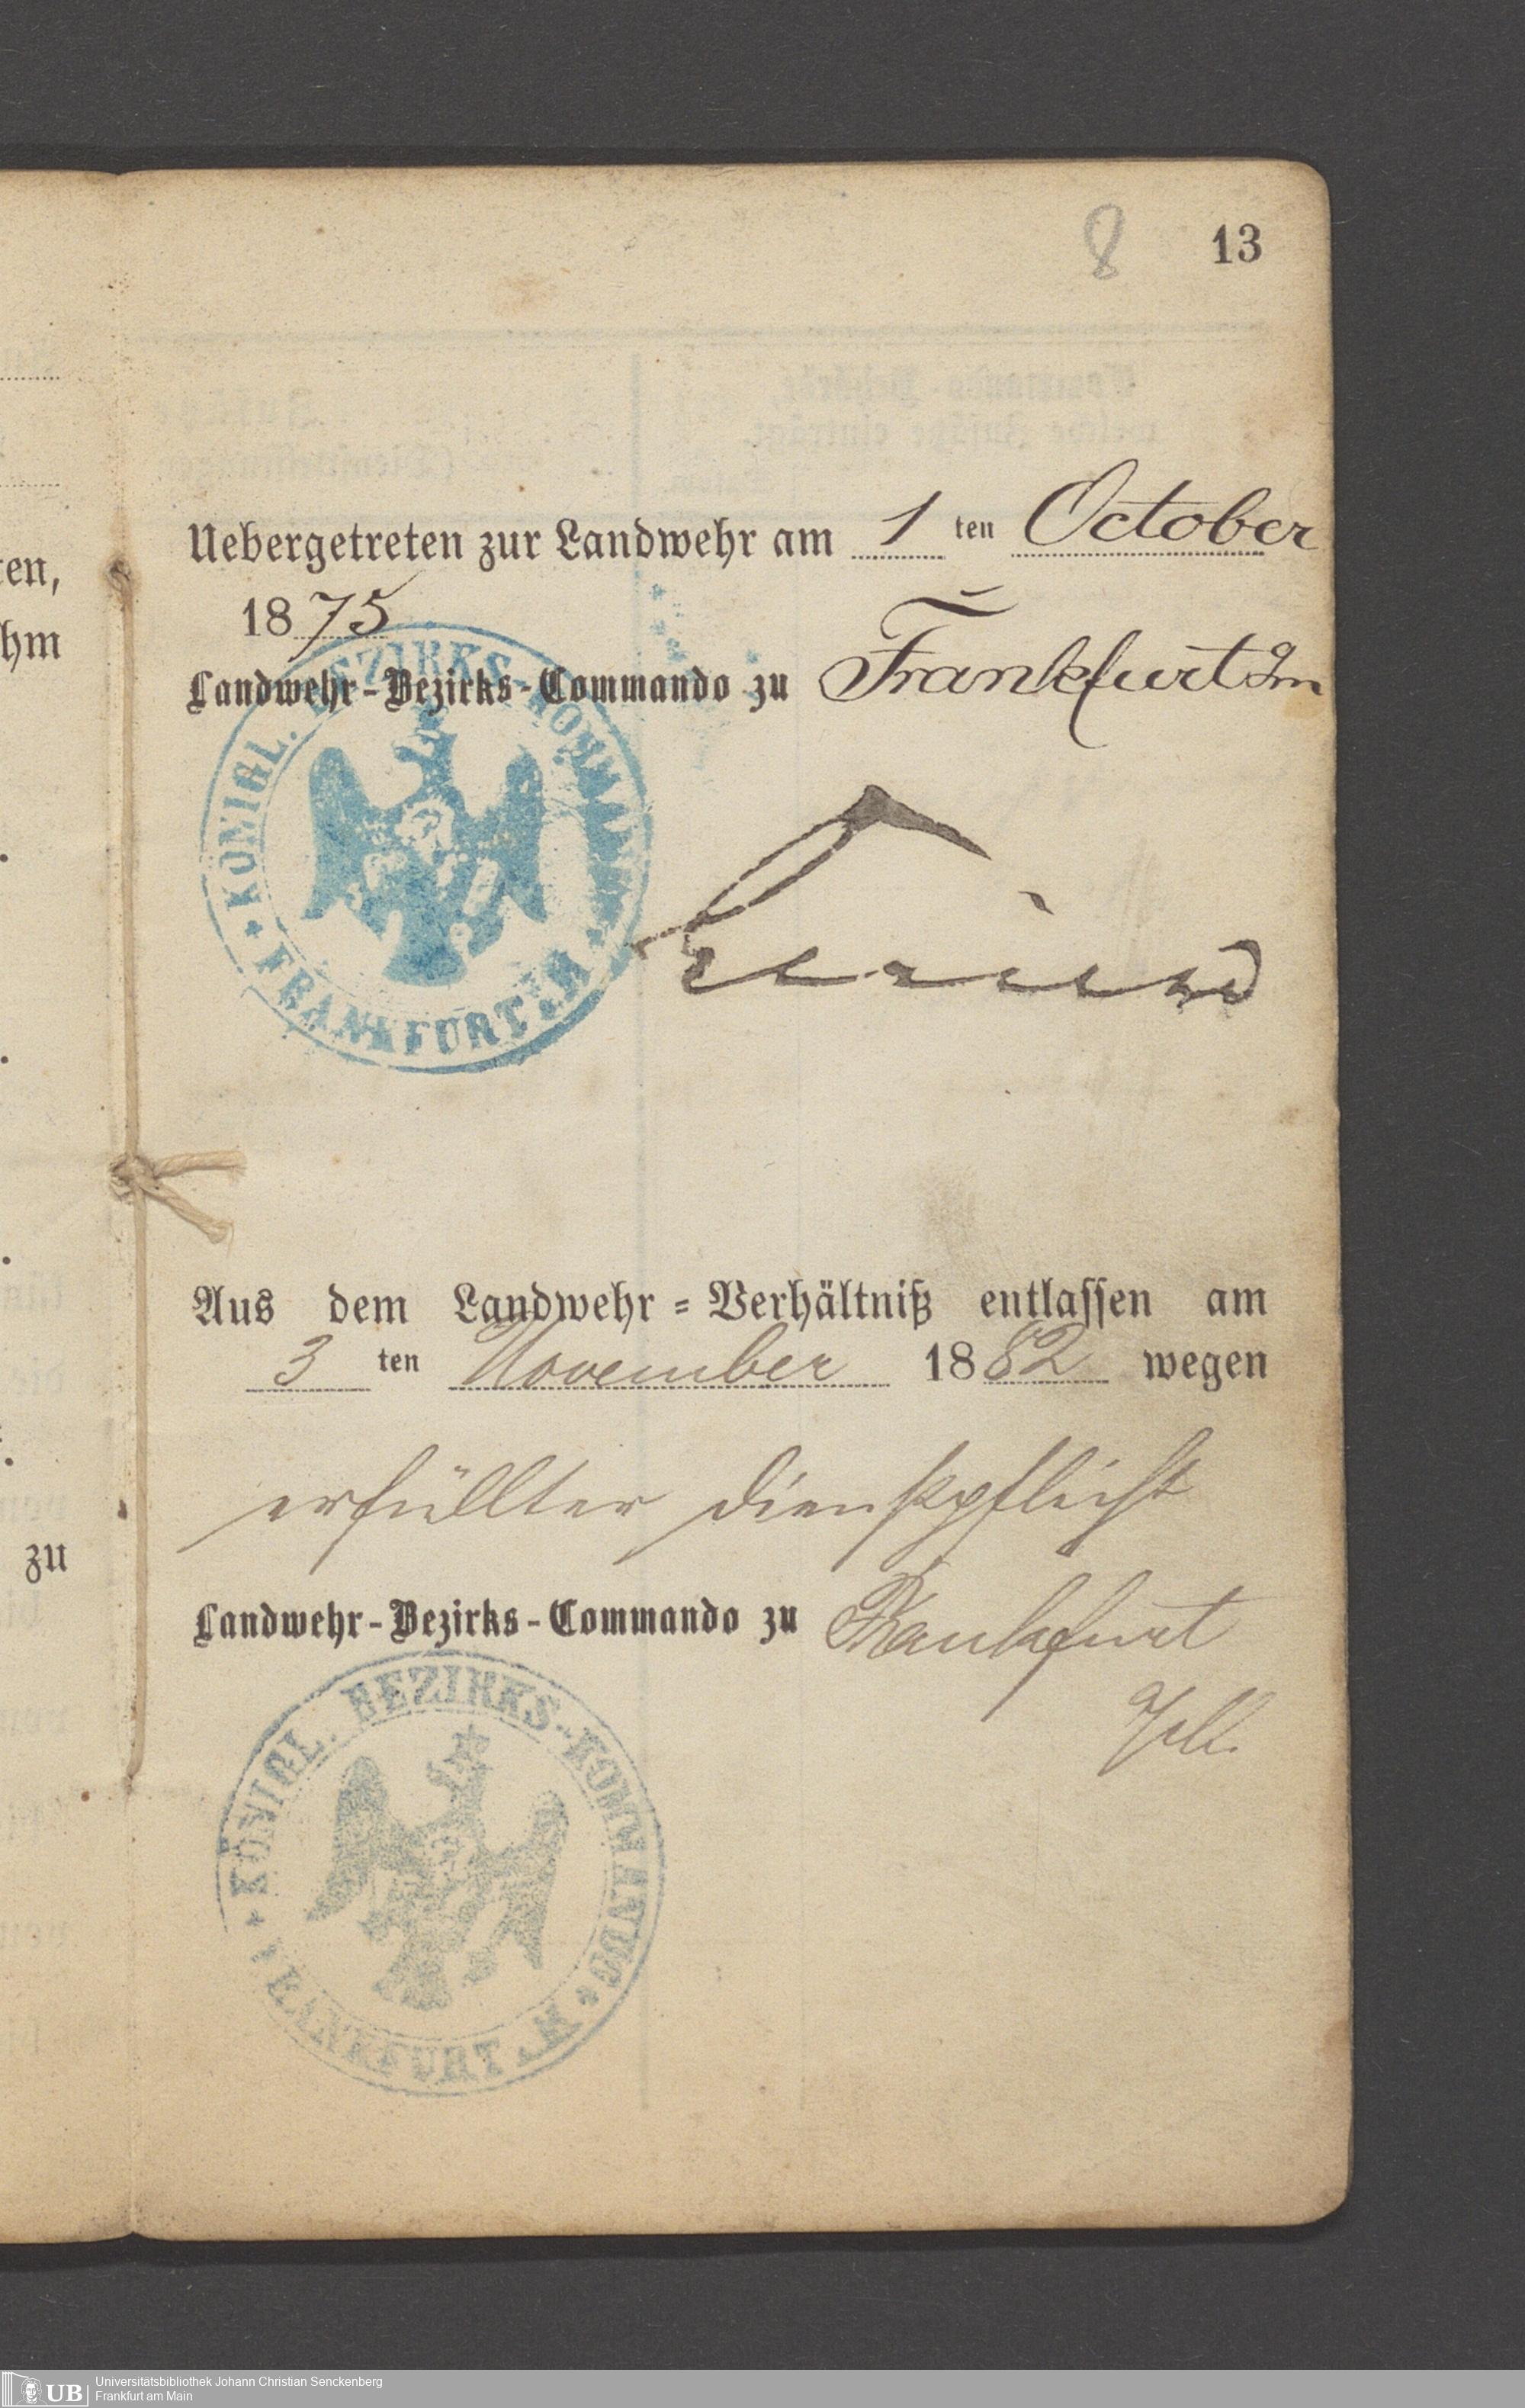 8 13
Uebergetreten zur Landwehr am 1 ten October
1875
Landwehr-Bezirks-Commando zu Frankfurt a/m
KÖNIGL. BEZIRKS-KOMMANDO
FRANKFURT A/M
ten,
hm
Aus dem Landwehr-Verhältniß entlassen am
3 ten November 1882 wegen
erfüllter Dienstpflicht
zu
Landwehr-Bezirks-Commando zu Frankfurt
KÖNIGL. BEZIRKS-KOMMANDO
FRANKFURT A/M
UB
Universitätsbibliothek Johann Christian Senckenberg
Frankfurt am Main